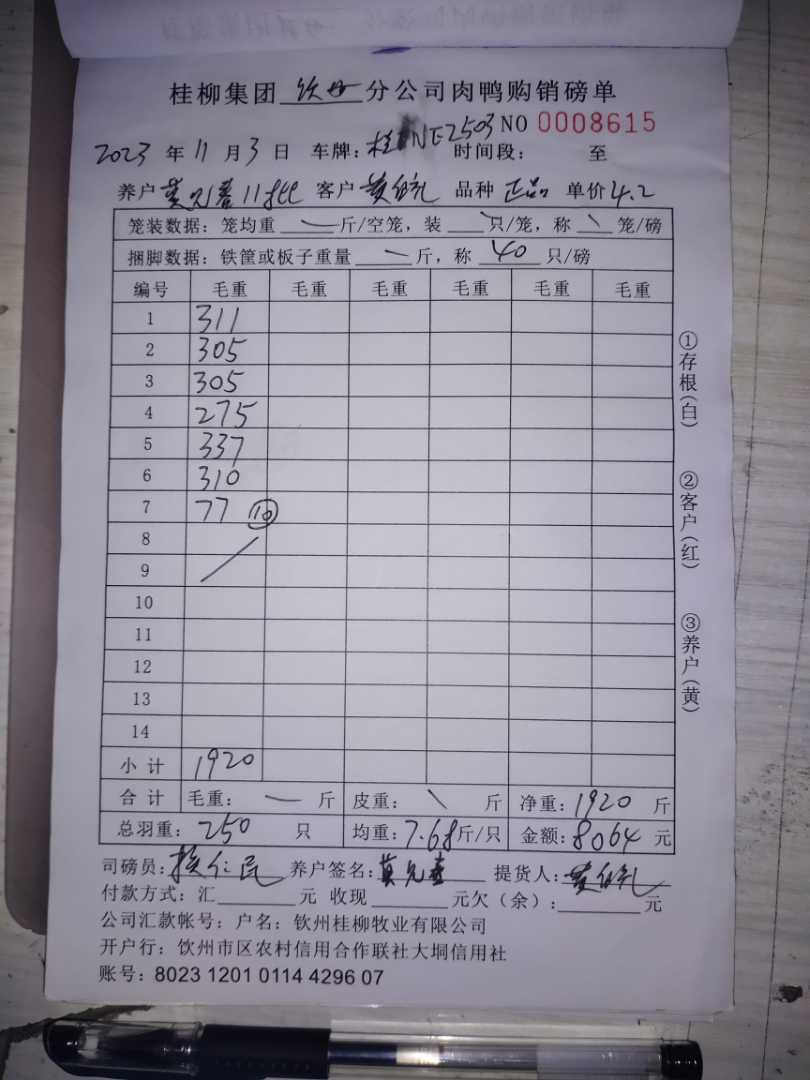 桂柳集团 钦州 分公司肉鸭购销磅单
NO 0008615
2023 年 11 月 3 日 车牌：桂NE2503 时间段： 至
养户 11批 客户 黄 品种 正品 单价 4.2
笼装数据：笼均重 — 斤/空笼，装 \ 只/笼，称 \ 笼/磅
捆脚数据：铁筐或板子重量 — 斤，称 40 只/磅
编号 毛重 毛重 毛重 毛重 毛重 毛重
1 311
2 305
3 305
4 275
5 337
6 310
7 77 ⑩
8
9
10
11
12
13
14
小计 1920
合计 毛重： — 斤 皮重： \ 斤 净重：1920 斤
总羽重：250 只 均重：7.68斤/只 金额：8064 元
司磅员： 养户签名： 提货人：
付款方式：汇 元 收现 元欠（余）： 元
公司汇款帐号：户名：钦州桂柳牧业有限公司
开户行：饮州市区农村信用合作联社大垌信用社
账号：8023 1201 0114 4296 07
①存根（白）
②客户（红）
③养户（黄）